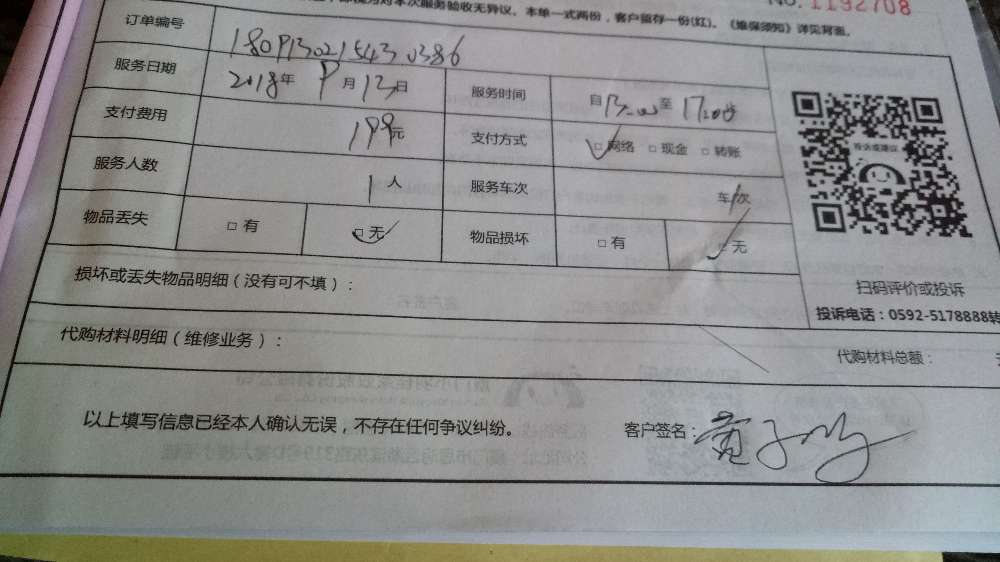 NO.1192708
对本次服务验收无异议。本单一式两份，客户留存一份(红)。《维保须知》详见背面。
订单编号 180913021543 0386
服务日期 2018年 9月13日 服务时间 自13:00至17:00
支付费用 199元 支付方式 □网络 □现金 □转账
服务人数 1人 服务车次 车/次
物品丢失 □有 □无 物品损坏 □有 □无
投诉或建议
扫码评价或投诉
损坏或丢失物品明细（没有可不填）：
投诉电话：0592-5178888转
代购材料明细（维修业务）：
代购材料总额：
以上填写信息已经本人确认无误，不存在任何争议纠纷。 客户签名：